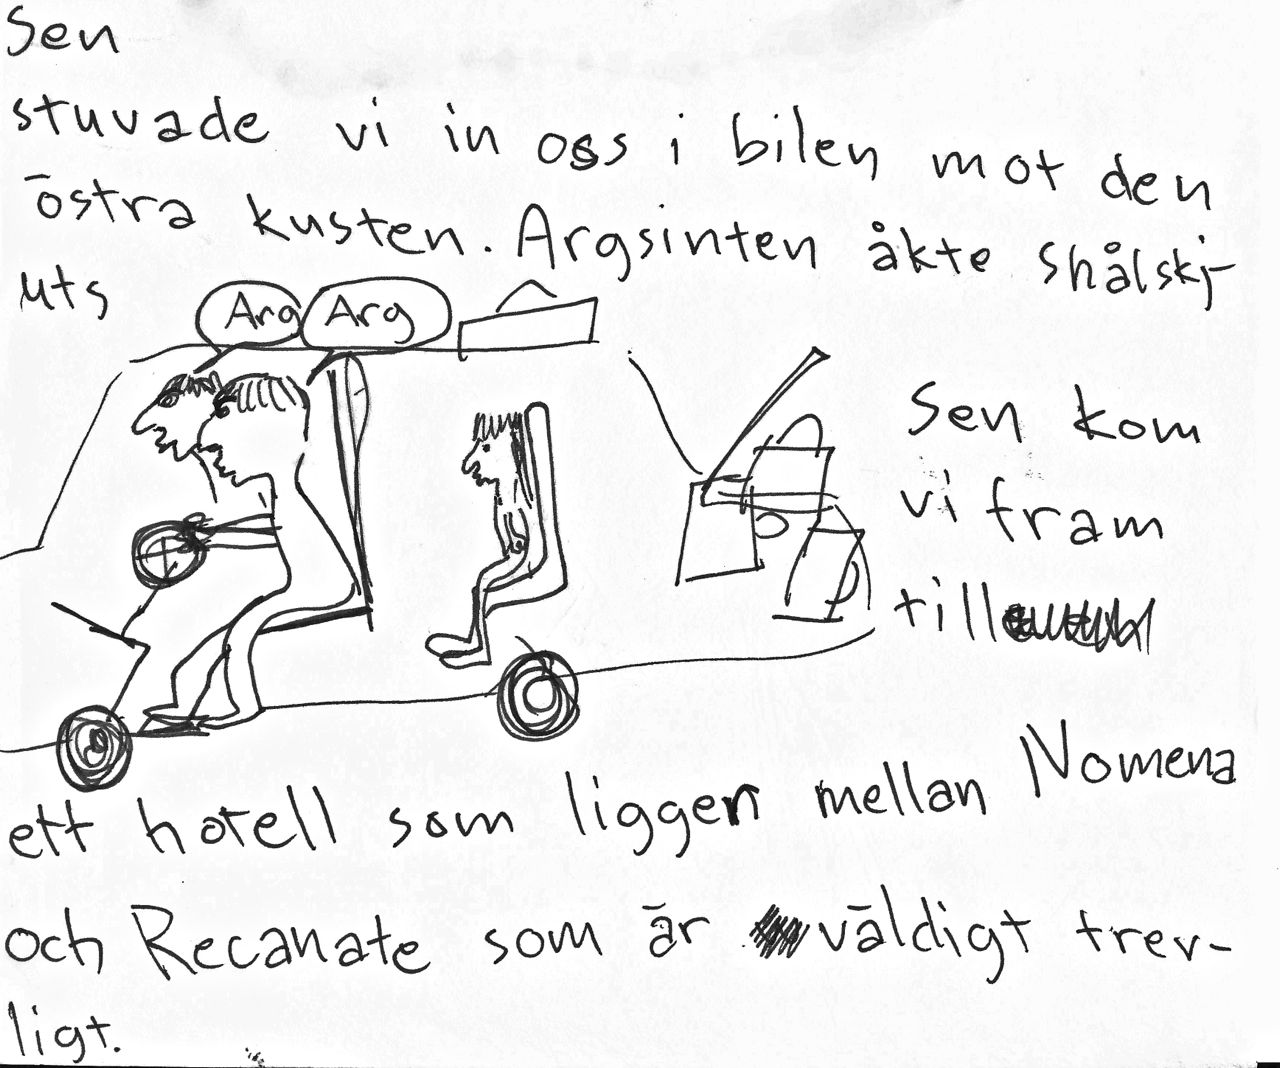 Sen
stuvade vi in oss i bilen mot den
östra kusten. Argsinten åkte skålskj-
uts
Arg Arg
Sen kom
vi fram
till
ett hotell som ligger mellan Nomena
och Recanate som är väldigt trev-
ligt.